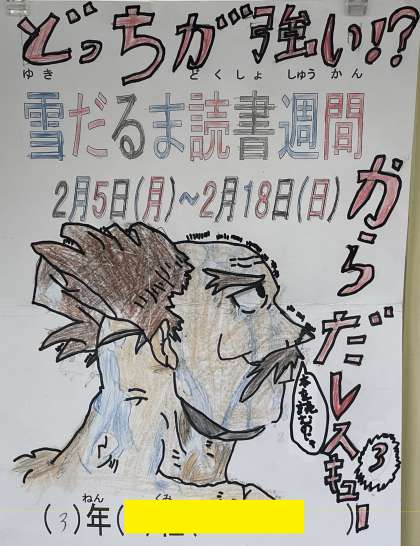 どっちが強い!?
ゆき どくしょ しゅうかん
雪だるま読書週間
2月5日(月)~2月18日(日)
からだレスキュー
3
ねん くみ
(3)年(
)